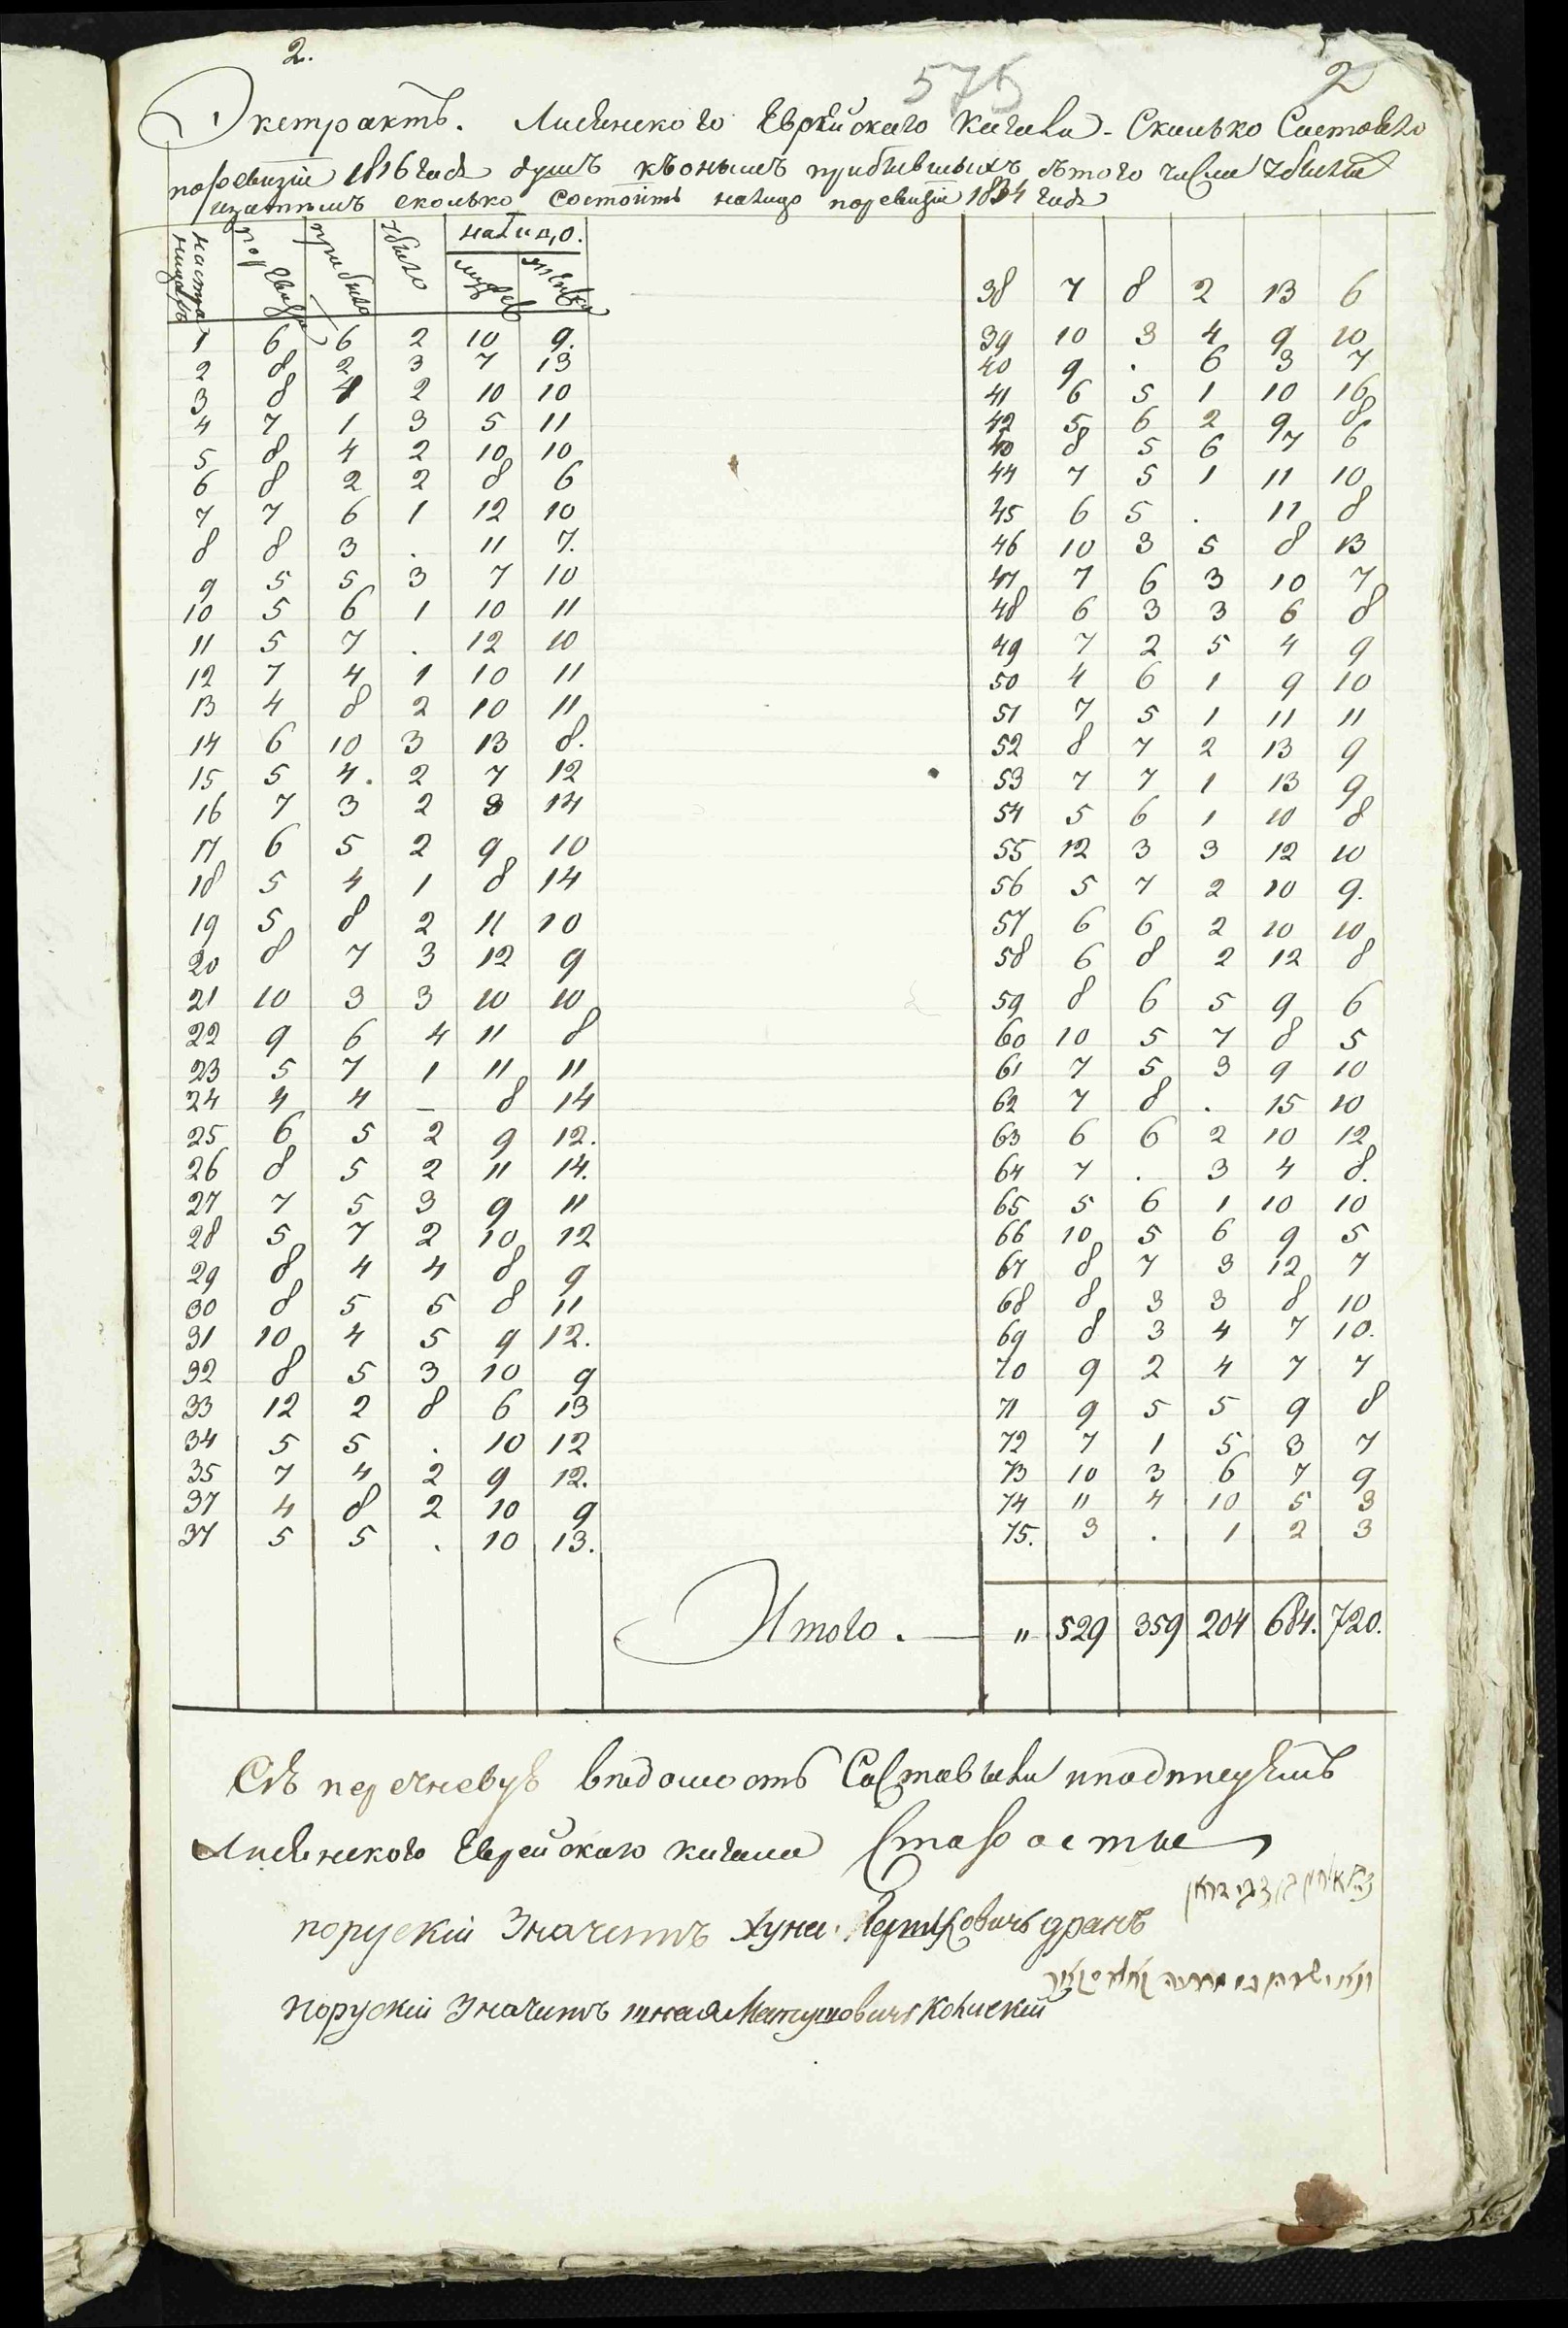 2.
575
2
Экстрактъ. Лисянского Еврейского Кагала. Сколько Состояло
поревизіи 1816 года душъ къонымъ прибывшыхъ стого числа убыли
изатемъ сколько состоитъ налицо поревизіи 1834 года
настраницахъ | поревизіи | прибыло | убыло | налицо.
мужеск | женска
1 6 6 2 10 9.
2 8 2 3 7 13
3 8 4 2 10 10
4 7 1 3 5 11
5 8 4 2 10 10
6 8 2 2 8 6
7 7 6 1 12 10
8 8 3 . 11 7.
9 5 5 3 7 10
10 5 6 1 10 11
11 5 7 . 12 10
12 7 4 1 10 11
13 4 8 2 10 11
14 6 10 3 13 8.
15 5 4. 2 7 12
16 7 3 2 8 14
17 6 5 2 9 10
18 5 4 1 8 14
19 5 8 2 11 10
20 8 7 3 12 9
21 10 3 3 10 10
22 9 6 4 11 8
23 5 7 1 11 11
24 4 4 – 8 14
25 6 5 2 9 12.
26 8 5 2 11 14.
27 7 5 3 9 11
28 5 7 2 10 12
29 8 4 4 8 9
30 8 5 5 8 11
31 10 4 5 9 12.
32 8 5 3 10 9
33 12 2 8 6 13
34 5 5 . 10 12
35 7 4 2 9 12.
37 4 8 2 10 9
37 5 5 . 10 13.
38 7 8 2 13 6
39 10 3 4 9 10
40 9 . 6 3 7
41 6 5 1 10 16
42 5 6 2 9 8
43 8 5 6 7 6
44 7 5 1 11 10
45 6 5 . 11 8
46 10 3 5 8 13
47 7 6 3 10 7
48 6 3 3 6 8
49 7 2 5 4 9
50 4 6 1 9 10
51 7 5 1 11 11
52 8 7 2 13 9
53 7 7 1 13 9
54 5 6 1 10 8
55 12 3 3 12 10
56 5 7 2 10 9.
57 6 6 2 10 10
58 6 8 2 12 8
59 8 6 5 9 6
60 10 5 7 8 5
61 7 5 3 9 10
62 7 8 . 15 10
63 6 6 2 10 12
64 7 . 3 4 8.
65 5 6 1 10 10
66 10 5 6 9 5
67 8 7 3 12 7
68 8 3 3 8 10
69 8 3 4 7 10.
70 9 2 4 7 7
71 9 5 5 9 8
72 7 1 5 3 7
73 10 3 6 7 9
74 11 4 10 5 3
75. 3 . 1 2 3
Итого. — " 529 359 204 684. 720.
Сію перечневую ведомость Составили иподписуемъ
Лисянского Еврейскаго кагала Старосты
порускій Значитъ Хуна
порускій Значитъ